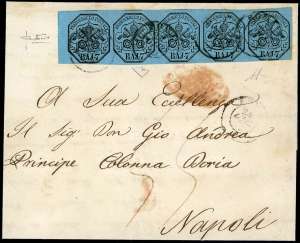 BAJ 7 BAJ 7 BAJ 7 BAJ 7 BAJ 7
A Sua Eccellenza
Il Sig Don Gio Andrea
Principe Colonna Doria
Napoli